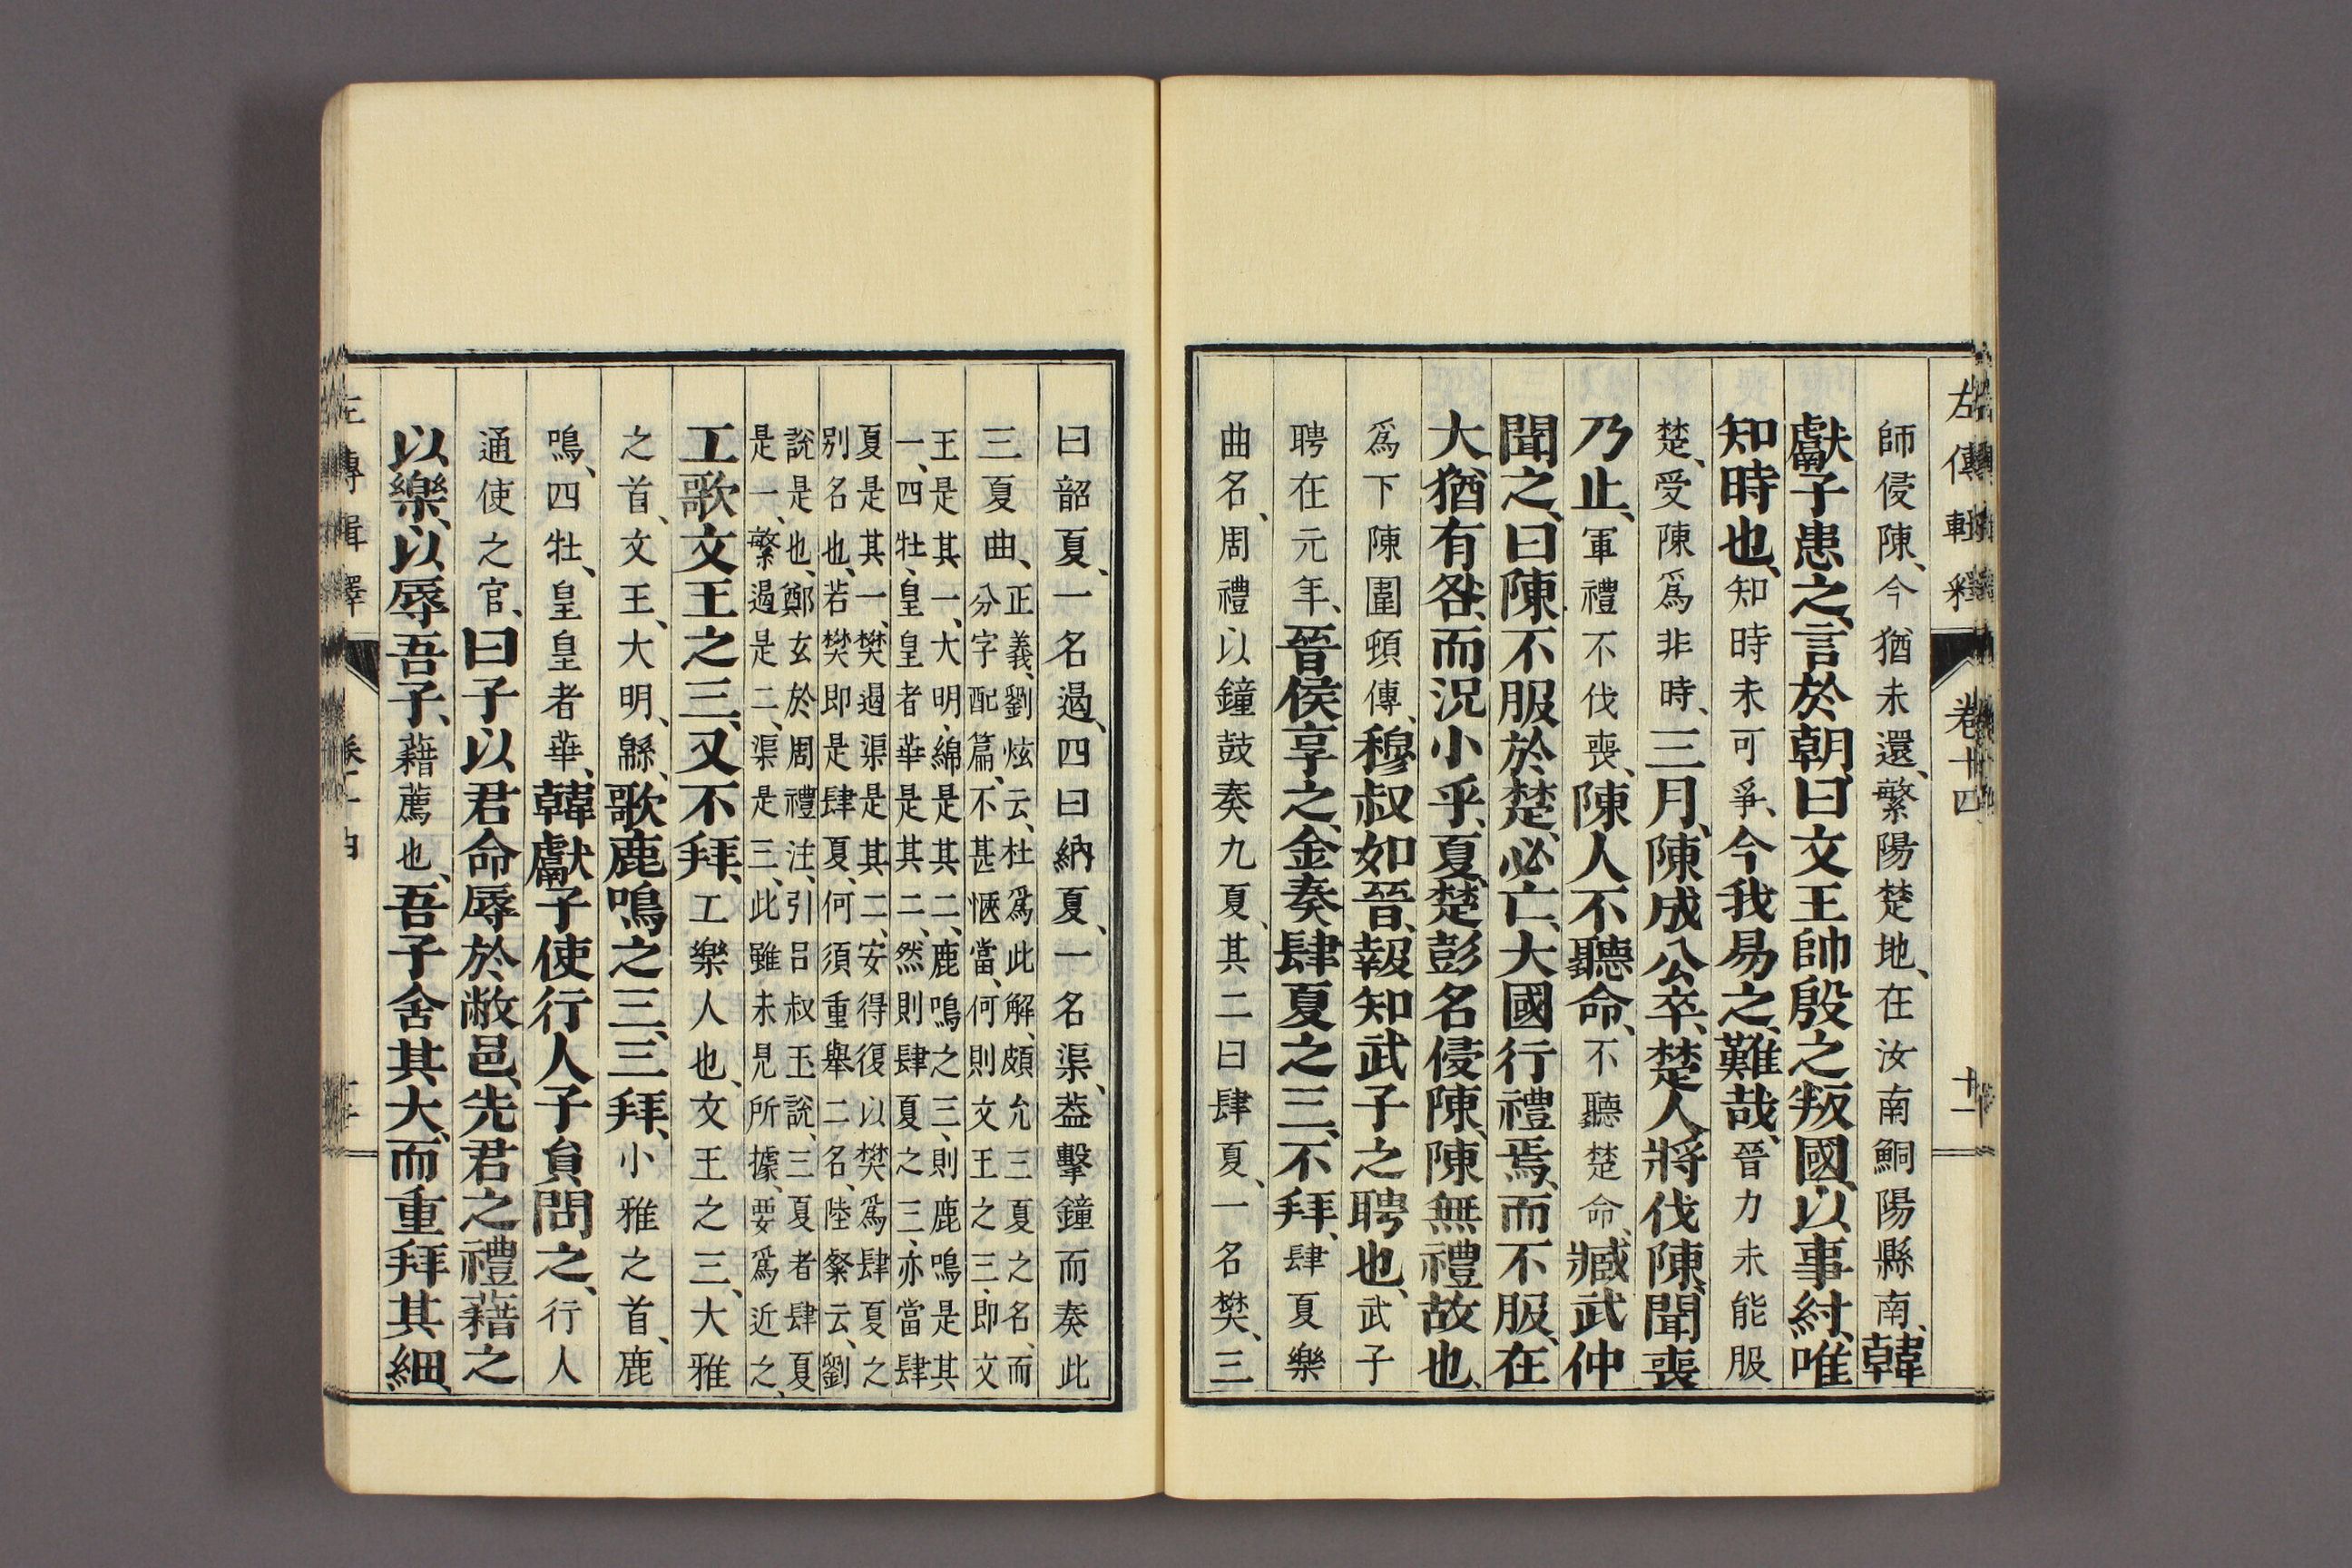 左傳輯釋 卷十四 十一
師侵陳、今猶未還、繁陽楚地、在汝南鮦陽縣南、韓
獻子患之、言於朝曰、文王帥殷之叛國、以事紂、唯
知時也、知時未可爭、今我易之、難哉、晉力未能服
楚、受陳爲非時、三月、陳成公卒、楚人將伐陳、聞喪
乃止、軍禮不伐喪、陳人不聽命、不聽楚命、臧武仲
聞之、曰、陳不服於楚、必亡、大國行禮焉、而不服、在
大猶有咎、而況小乎、夏、楚彭名侵陳、陳無禮故也、
爲下陳圍頓傳、穆叔如晉、報知武子之聘也、武子
聘在元年、晉侯享之、金奏肆夏之三、不拜、肆夏樂
曲名、周禮以鐘鼓奏九夏、其二曰肆夏、一名樊、三
曰韶夏、一名遏、四曰納夏、一名渠、葢擊鐘而奏此
三夏曲、正義、劉炫云、杜爲此解、頗允三夏之名、而
分字配篇、不甚愜當、何則文王之三、即文
王是其一、大明、綿是其二、鹿鳴之三、則鹿鳴是其
一、四牡、皇皇者華是其二、然則肆夏之三、亦當肆
夏是其一、樊遏渠是其二、安得復以樊爲肆夏之
別名也、若樊即是肆夏、何須重舉二名、陸粲云、劉
說是也、鄭玄於周禮注、引呂叔玉說、三夏者肆夏
是一、繁遏是二、渠是三、此雖未見所據、要爲近之、
工歌文王之三、又不拜、工樂人也、文王之三、大雅
之首、文王、大明、緜、歌鹿鳴之三、三拜、小雅之首、鹿
鳴、四牡、皇皇者華、韓獻子使行人子貟問之、行人
通使之官、曰、子以君命辱於敝邑、先君之禮、藉之
以樂、以辱吾子、藉薦也、吾子舍其大、而重拜其細、
左傳輯釋